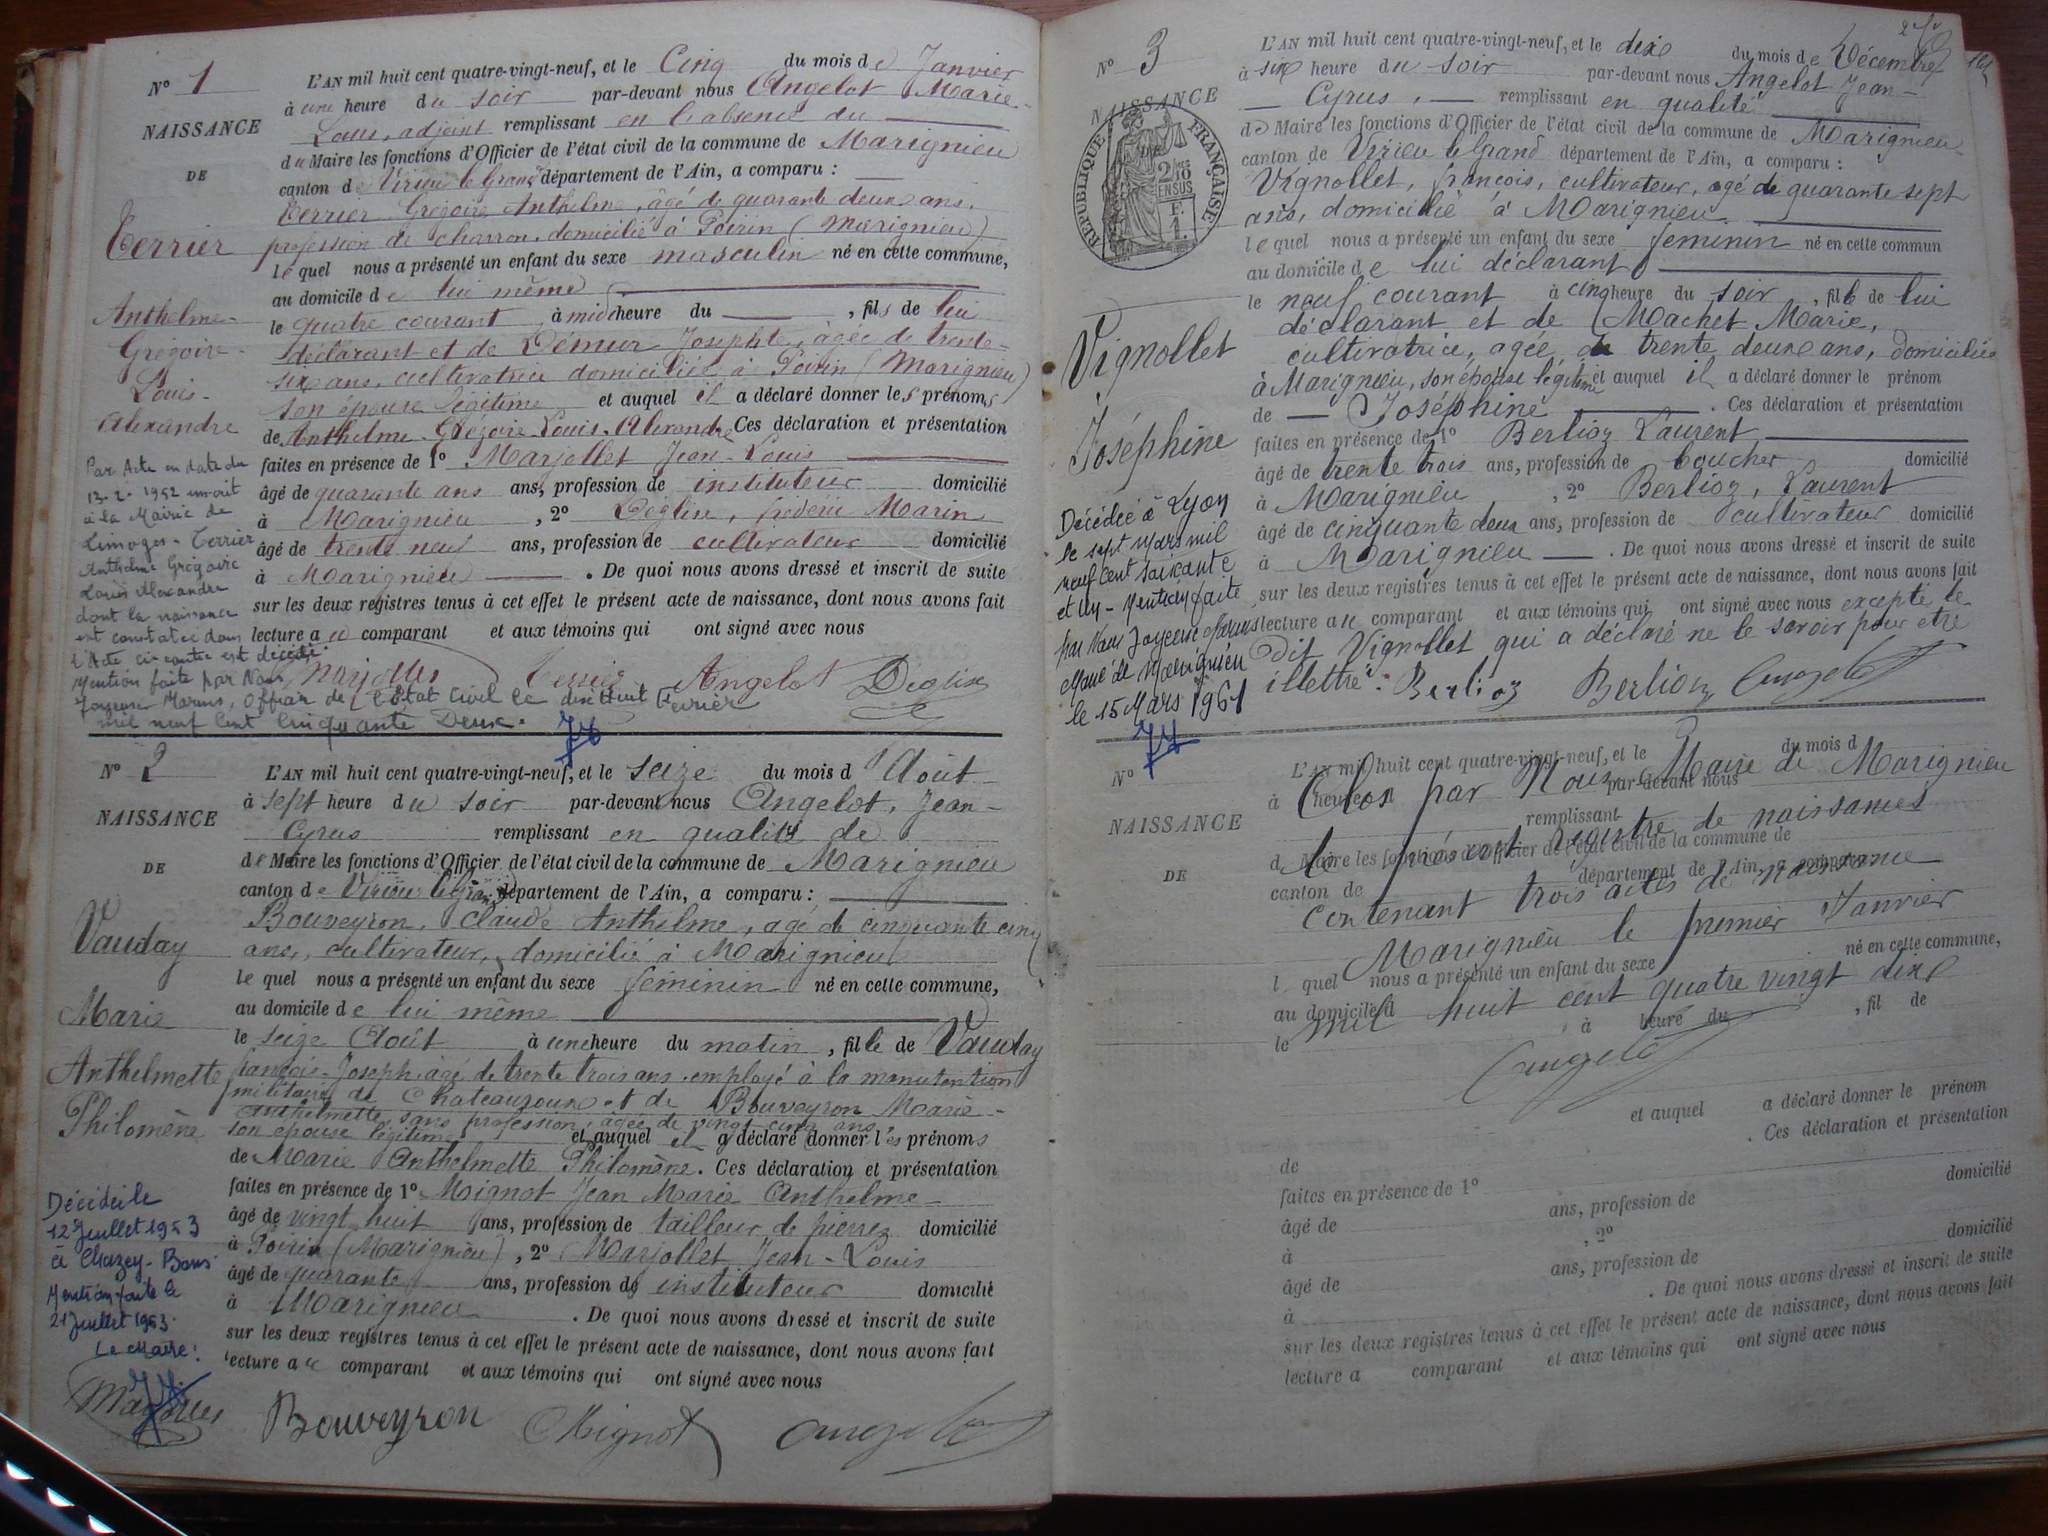 N° 1
NAISSANCE
DE
Terrier
Anthelme-
Grégoire-
Louis-
Alexandre
Par Acte en date du
13-2-1952 inscrit
à la Mairie de
Limoges - Terrier
Anthelme Grégoire
Louis Alexandre
dont la naissance
est constatée dans
l'Acte ci-contre est décédé.
Mention faite par Nous
Joyeux Marius, Officier de l'Etat Civil le dix huit Février
mil neuf cent cinquante Deux.
L'AN mil huit cent quatre-vingt-neuf, et le Cinq du mois de Janvier
à une heure du soir par-devant nous Angelot Marie-
Louis, adjoint remplissant en l'absence du
du Maire les fonctions d'Officier de l'état civil de la commune de Marignieu
canton de Virieu le Grand département de l'Ain, a comparu :
Terrier Grégoire Anthelme, âgé de quarante deux ans,
profession de charron, domicilié à Poirin (Marignieu)
lequel nous a présenté un enfant du sexe masculin né en cette commune,
au domicile de lui même
le quatre courant à midi heure du , fils de lui
déclarant et de Demeur Josephte, âgée de trente-
six ans, cultivatrice domiciliée à Poirin (Marignieu)
son épouse légitime et auquel il a déclaré donner les prénoms
de Anthelme Grégoire Louis Alexandre Ces déclaration et présentation
faites en présence de 1° Marjollet Jean-Louis
âgé de quarante ans ans, profession de instituteur domicilié
à Marignieu , 2° Déglise, frédéric Marin
âgé de trente neuf ans, profession de cultivateur domicilié
à Marignieu . De quoi nous avons dressé et inscrit de suite
sur les deux registres tenus à cet effet le présent acte de naissance, dont nous avons fait
lecture au comparant et aux témoins qui ont signé avec nous
Marjollet Terrier Angelot Déglise
N° 2
NAISSANCE
DE
Vauday
Marie
Anthelmette
Philomène
Décédée le
12 Juillet 1953
à Chazey-Bons
Mention faite le
21 Juillet 1953.
Le Maire:
L'AN mil huit cent quatre-vingt-neuf, et le seize du mois d Août
à sept heure du soir par-devant nous Angelot, Jean-
Cyrus remplissant en qualité de
de Maire les fonctions d'Officier de l'état civil de la commune de Marignieu
canton de Virieu le Grand département de l'Ain, a comparu :
Bouveyron, Claude Anthelme, agé de cinquante cinq
ans, cultivateur, domicilié à Marignieu
lequel nous a présenté un enfant du sexe féminin né en cette commune,
au domicile de lui même
le seize Août à une heure du matin, fille de Vauday
françois-Joseph âgé de trente trois ans employé à la manutention
militaire de Chateauroux et de Bouveyron Marie-
Anthelmette, sans profession, âgée de vingt cinq ans,
son épouse légitime et auquel il a déclaré donner les prénoms
de Marie Anthelmette Philomène. Ces déclaration et présentation
faites en présence de 1° Mignot Jean Marie Anthelme
âgé de vingt huit ans, profession de tailleur de pierrez domicilié
à Poirin (Marignieu), 2° Marjollet Jean-Louis
âgé de quarante ans, profession de instituteur domicilié
à Marignieu . De quoi nous avons dressé et inscrit de suite
sur les deux registres tenus à cet effet le présent acte de naissance, dont nous avons fait
lecture au comparant et aux témoins qui ont signé avec nous
Marjollet Bouveyron Mignot Angelot
N° 3
NAISSANCE
RÉPUBLIQUE FRANÇAISE
2/10
EN SUS
F.
1.
Vignollet
Joséphine
Décédée à Lyon
le sept Mars mil
neuf cent soixante
et un - Mention faite
par Nous Joyeux Marius
Maire de Marignieu
le 15 Mars 1961
L'AN mil huit cent quatre-vingt-neuf, et le dix du mois de Décembre
à six heure du soir par-devant nous Angelot Jean-
Cyrus, remplissant en qualité
de Maire les fonctions d'Officier de l'état civil de la commune de Marignieu
canton de Virieu le Grand département de l'Ain, a comparu :
Vignollet, françois, cultivateur, agé de quarante sept
ans, domicilié à Marignieu.
lequel nous a présenté un enfant du sexe féminin né en cette commun
au domicile de lui déclarant
le neuf courant à cinq heure du soir, fille de lui
déclarant et de Machet Marie,
cultivatrice, agée de trente deux ans, domiciliée
à Marignieu, son épouse légitime et auquel il a déclaré donner le prénom
de Joséphine . Ces déclaration et présentation
faites en présence de 1° Berlioz Laurent
âgé de trente trois ans, profession de boucher domicilié
à Marignieu , 2° Berlioz, Laurent
âgé de cinquante deux ans, profession de cultivateur domicilié
à Marignieu . De quoi nous avons dressé et inscrit de suite
sur les deux registres tenus à cet effet le présent acte de naissance, dont nous avons fait
lecture au comparant et aux témoins qui ont signé avec nous excepté le
dit Vignollet qui a déclaré ne le savoir pour être
illettré. Berlioz Berlioz Angelot
N°
NAISSANCE
DE
L'AN mil huit cent quatre-vingt-neuf, et le du mois d
Clos par Nous Maire de Marignieu
à heure d par-devant nous
remplissant
le présent registre de naissances
d Maire les fonctions d'Officier de l'état civil de la commune de
canton de département de l'Ain, a comparu
contenant trois actes de naissance
Marignieu le premier Janvier
l quel nous a présenté un enfant du sexe né en cette commune,
mil huit cent quatre vingt dix
au domicile d
le à heure du , fil de
Angelot
et auquel a déclaré donner le prénom
de . Ces déclaration et présentation
faites en présence de 1°
âgé de ans, profession de domicilié
à , 2°
âgé de ans, profession de domicilié
à . De quoi nous avons dressé et inscrit de suite
sur les deux registres tenus à cet effet le présent acte de naissance, dont nous avons fait
lecture a comparant et aux témoins qui ont signé avec nous